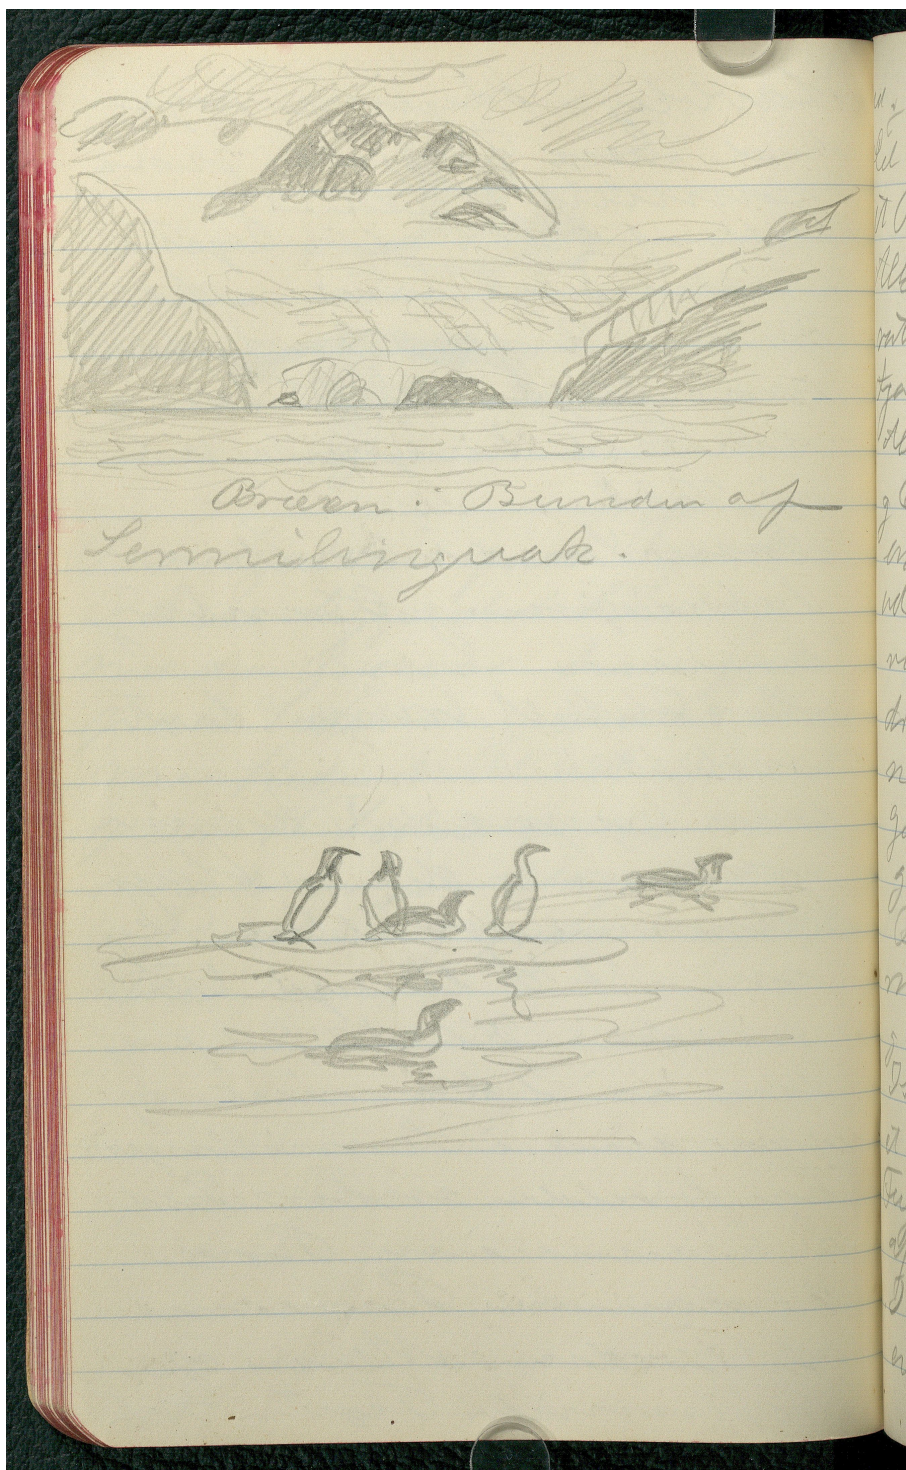 Bræen i Bunden af
Sermilinguak.